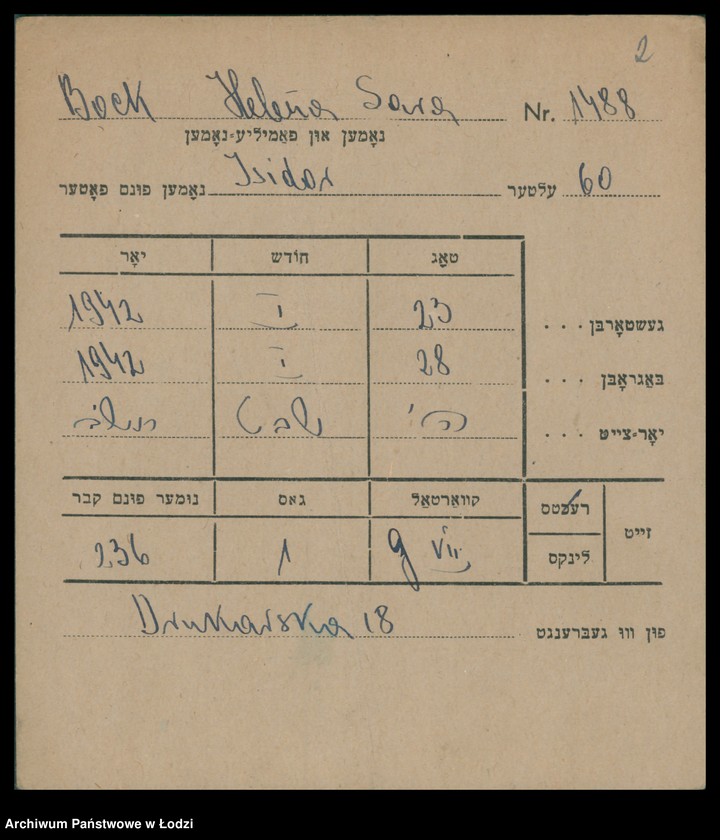 2
Bock Helena Sara Nr. 1488
נאָמען און פאַמיליע=נאָמען
נאָמען פונם פאָטער Isidor עלטער 60
טאָג חודש יאָר
געשטאָרבן . . . 23 I 1942
באַגראָבן . . . 28 I 1942
יאָר=צייט . . . ה' שבט תש"ב
זייט רעכטס קוואַרטאַל גאַס נומער פונם קבר
לינקס g VII 1 236
פון וווּ געברענגט Drukarska 18
Archiwum Państwowe w Łodzi